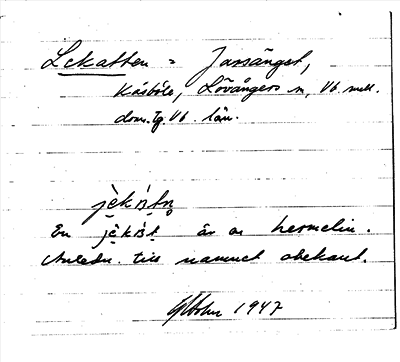 Lekatten = Jarsänget,
Kåsböle, Lövångers sn, Vb. mell.
dom. tg. Vb. län.
jèkàtn̥
En jèkàt är en hermelin.
Anledn. till namnet obekant.
1947